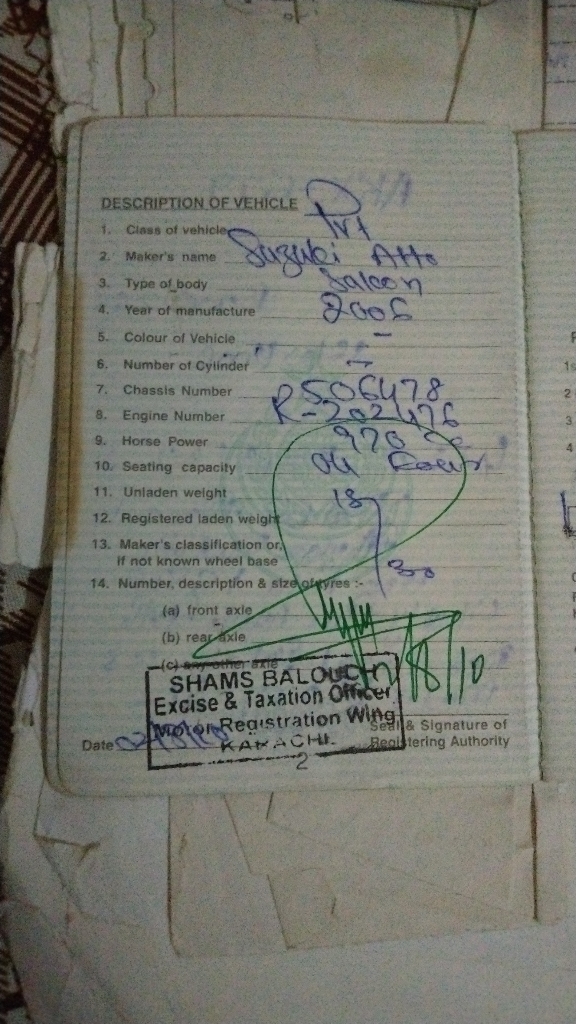 DESCRIPTION OF VEHICLE
1. Class of vehicle Prt
2. Maker's name Suzuki Alto
3. Type of body Saloon
4. Year of manufacture 2006
5. Colour of Vehicle -
6. Number of Cylinder -
7. Chassis Number R506478
8. Engine Number R-202476
9. Horse Power 970 cc
10. Seating capacity 04 Four
11. Unladen weight
12. Registered laden weight
13. Maker's classification or,
if not known wheel base
14. Number, description & size of tyres :-
(a) front axle
(b) rear axle
(c) any other axle
SHAMS BALOUCH
Excise & Taxation Officer
Motor Registration Wing
KARACHI.
Seal & Signature of
Registering Authority
Date
2